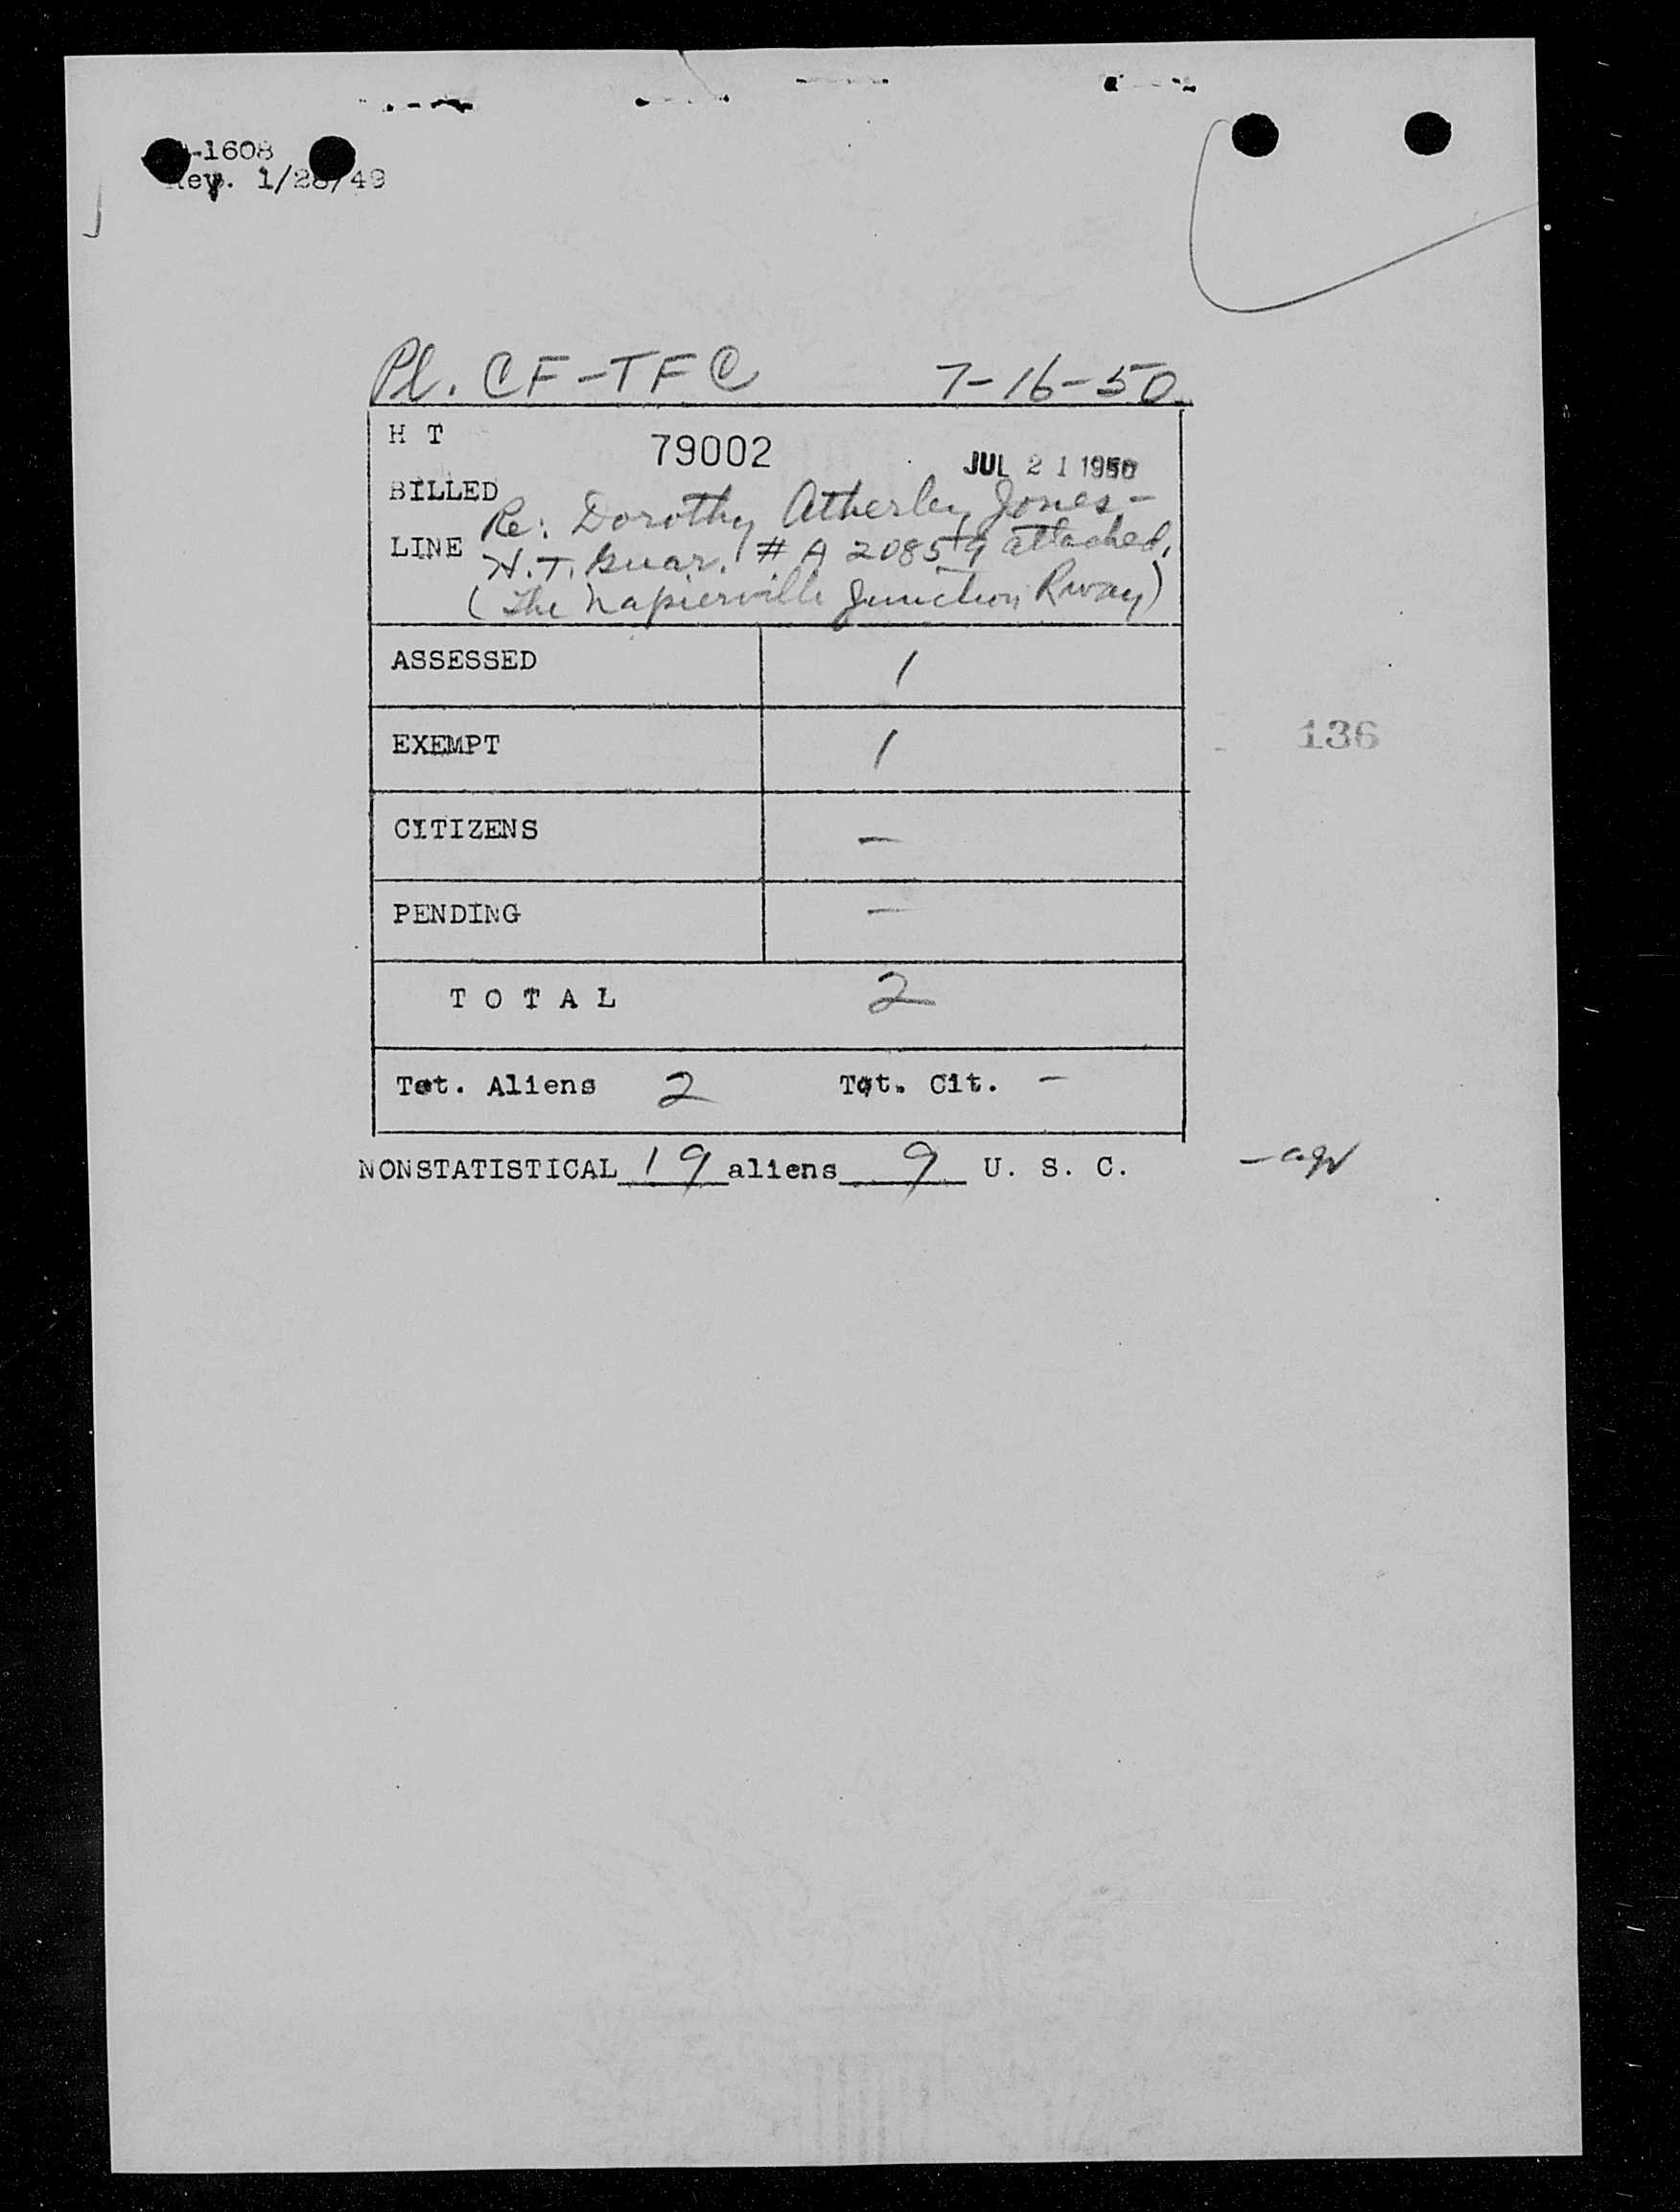 -1608
Rev. 1/28/49
Pl. CF-TFC 7-16-50
H T 79002 JUL 21 1950
BILLED
Re: Dorothy Atherley Jones -
LINE H.T. Guar. # A 20859 attached.
(The Napierville Junction Rway)
ASSESSED 1
EXEMPT 1
136
CITIZENS -
PENDING -
T O T A L 2
Tot. Aliens 2 Tot. Cit. -
NONSTATISTICAL 19 aliens 9 U. S. C.